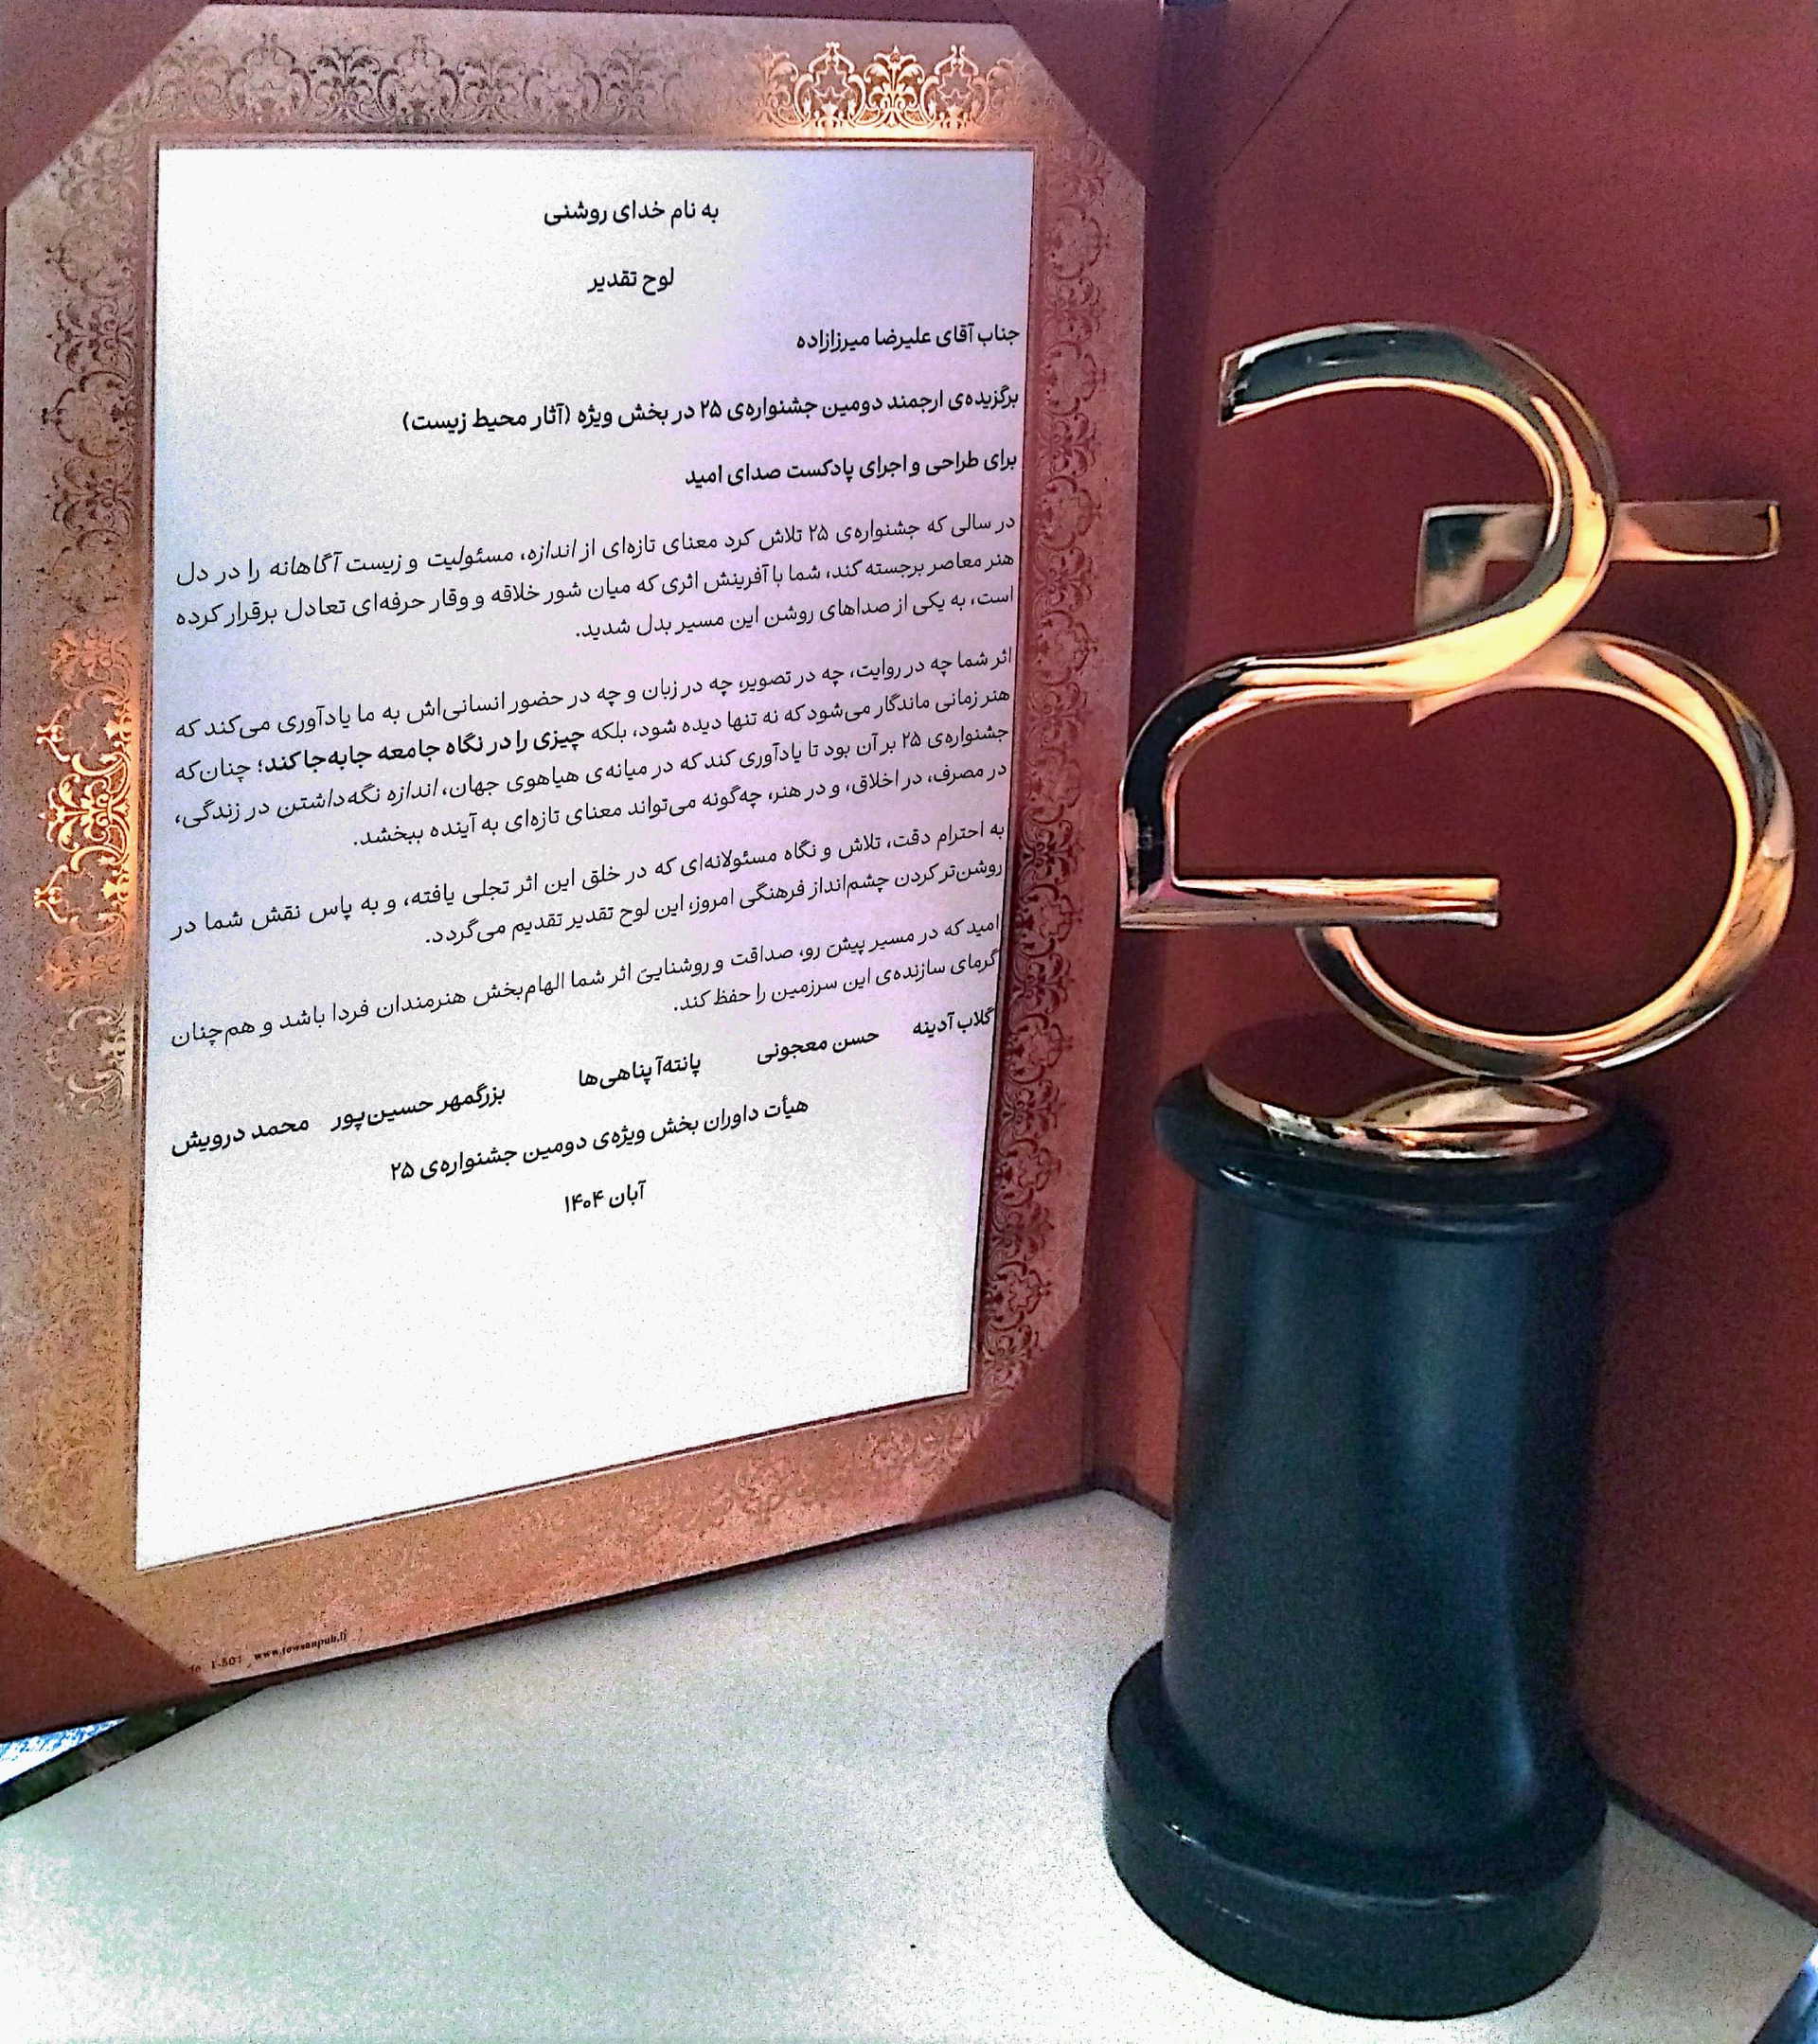 به نام خدای روشنی
لوح تقدیر
جناب آقای علیرضا میرزازاده
برگزیده‌ی ارجمند دومین جشنواره‌ی ۲۵ در بخش ویژه (آثار محیط زیست)
برای طراحی و اجرای پادکست صدای امید
در سالی که جشنواره‌ی ۲۵ تلاش کرد معنای تازه‌ای از اندازه، مسئولیت و زیست آگاهانه را در دل
هنر معاصر برجسته کند، شما با آفرینش اثری که میان شور خلاقه و وقار حرفه‌ای تعادل برقرار کرده
است، به یکی از صداهای روشن این مسیر بدل شدید.
اثر شما چه در روایت، چه در تصویر، چه در زبان و چه در حضور انسانی‌اش به ما یادآوری می‌کند که
هنر زمانی ماندگار می‌شود که نه تنها دیده شود، بلکه چیزی را در نگاه جامعه جابه‌جا کند؛ چنان‌که
جشنواره‌ی ۲۵ بر آن بود تا یادآوری کند که در میانه‌ی هیاهوی جهان، اندازه نگه‌داشتن در زندگی،
در مصرف، در اخلاق، و در هنر، چه‌گونه می‌تواند معنای تازه‌ای به آینده ببخشد.
به احترام دقت، تلاش و نگاه مسئولانه‌ای که در خلق این اثر تجلی یافته، و به پاس نقش شما در
روشن‌تر کردن چشم‌انداز فرهنگی امروز، این لوح تقدیر تقدیم می‌گردد.
امید که در مسیر پیش رو، صداقت و روشنایی اثر شما الهام‌بخش هنرمندان فردا باشد و هم‌چنان
گرمای سازنده‌ی این سرزمین را حفظ کند.
گلاب آدینه حسن معجونی پانته‌آ پناهی‌ها بزرگمهر حسین‌پور محمد درویش
هیأت داوران بخش ویژه‌ی دومین جشنواره‌ی ۲۵
آبان ۱۴۰۴
۲۵